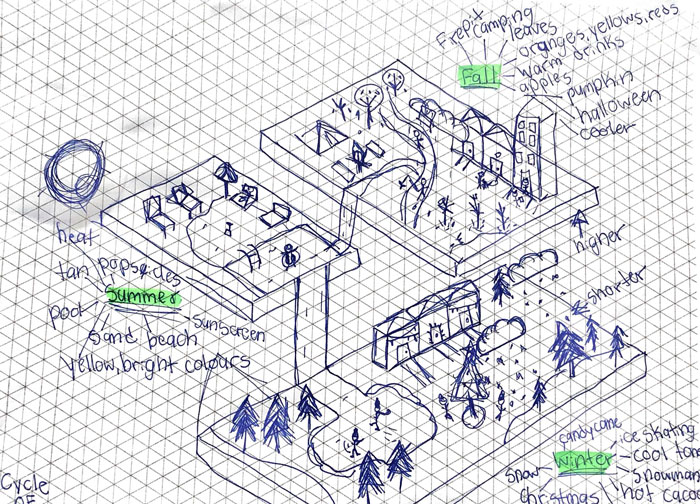 Firepit
camping
leaves
oranges, yellows, reds
Fall
warm drinks
apples
pumpkin
halloween
cooler
heat
tan
popsicles
Summer
pool
sunscreen
Sand
beach
Yellow, bright colours
higher
shorter
candycane
ice skating
winter
cool
snow
snowman
christmas
hot
Cycle